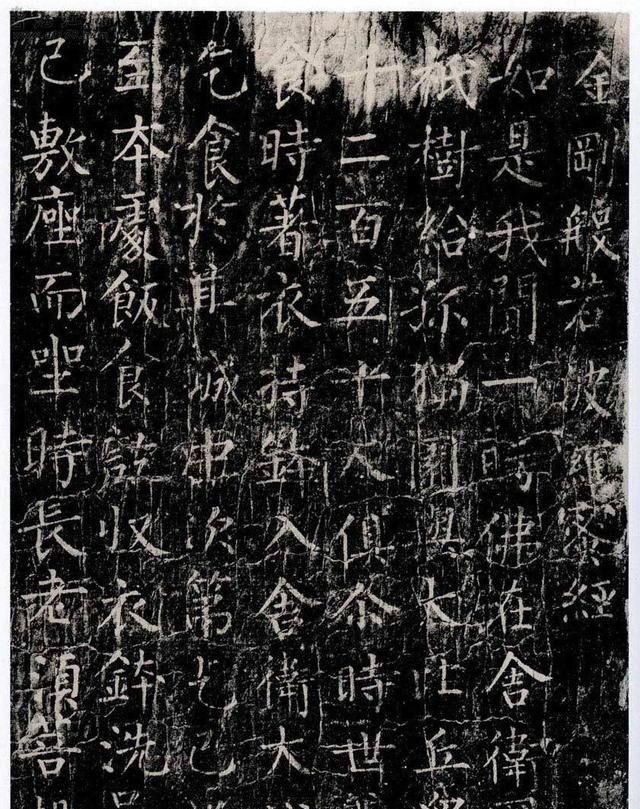 金剛般若波羅蜜經
如是我聞一時佛在舍衛
祇樹給孤獨園與大比丘
千二百五十人俱尒時世
食時著衣持鉢入舍衛大
乞食於其城中次第乞已
至本處飯食訖収衣鉢洗
已敷座而坐時長老湏菩